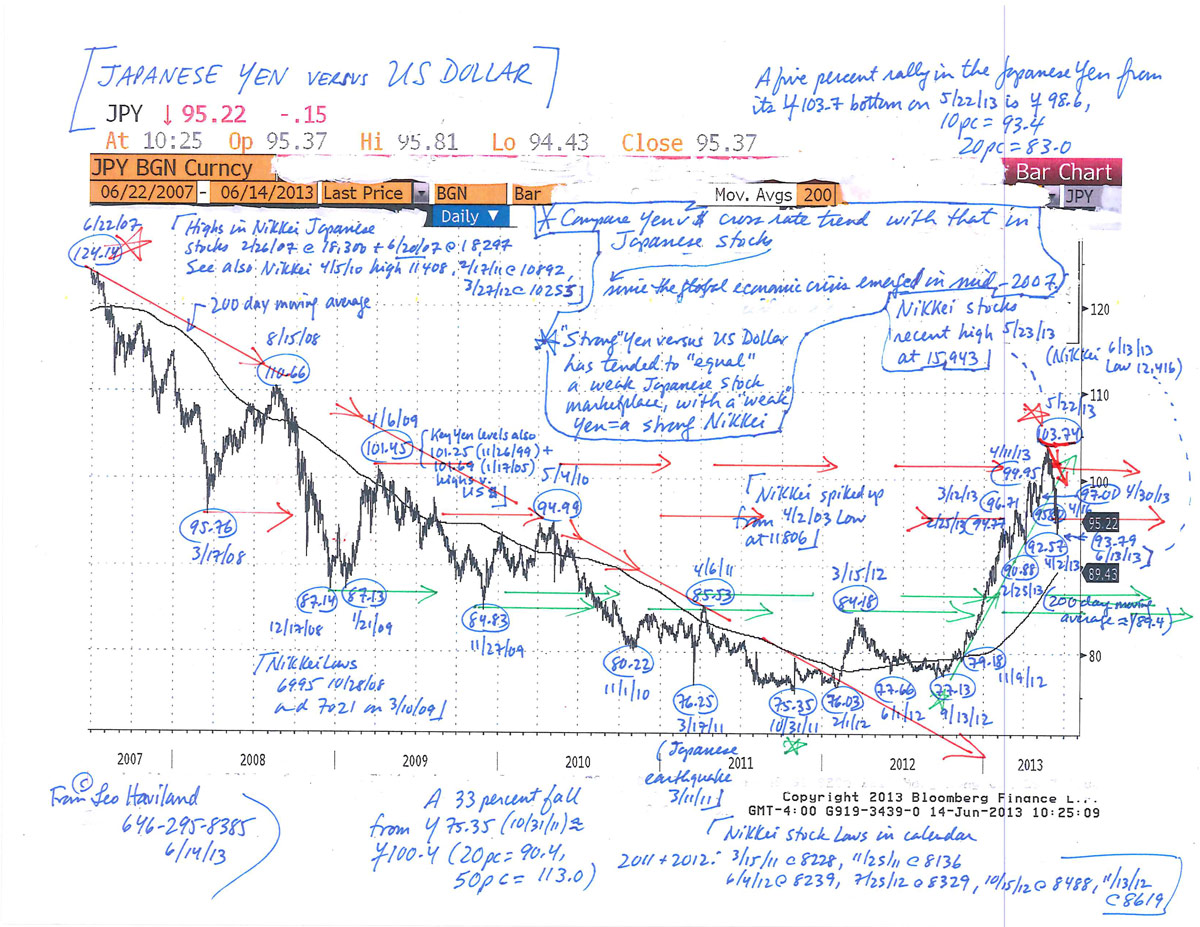 [JAPANESE YEN VERSUS US DOLLAR]
A five percent rally in the Japanese Yen from
its ¥103.7 bottom on 5/22/13 is ¥98.6,
10pc = 93.4
20pc = 83.0
JPY ↓ 95.22 -.15
At 10:25 Op 95.37 Hi 95.81 Lo 94.43 Close 95.37
JPY BGN Curncy
Bar Chart
06/22/2007 - 06/14/2013 Last Price BGN Bar Mov. Avgs 200 JPY
Daily
6/22/07
124.14
[Highs in Nikkei Japanese
stocks 2/26/07 @ 18,300 + 6/20/07 @ 18,297
See also Nikkei 4/5/10 high 11408, 2/17/11 @ 10892,
3/27/12 @ 10255]
* Compare Yen v $ cross rate trend with that in
Japanese stocks
since the global economic crisis emerged in mid-2007.
* "Strong" Yen versus US Dollar
has tended to "equal"
a weak Japanese stock
marketplace, with a "weak"
yen = a strong Nikkei
Nikkei stocks
recent high 5/23/13
at 15,943]
(Nikkei 6/13/13
Low 12,416)
200 day moving average
8/15/08
110.66
4/6/09
101.45
[Key Yen levels also
101.25 (11/26/99) +
101.69 (1/17/05)
highs v.
US $]
5/4/10
94.99
[Nikkei spiked up
from 4/2/03 Low
at 11806]
5/22/13
103.74
4/11/13
99.95
3/12/13
96.71
2/25/13 (94.77
97.01 4/30/13
4/16
95.22
(93.79
6/13/13)
92.57
4/2/13
90.88
2/25/13
89.43
(200 day moving
average ≈ ¥89.4)
120
110
100
80
95.76
3/17/08
87.14
12/17/08
87.13
1/21/09
84.83
11/27/09
80.22
11/1/10
4/6/11
85.53
3/15/12
84.18
76.25
3/17/11
(Japanese
earthquake
3/11/11]
75.35
10/31/11
76.03
2/1/12
77.66
6/1/12
77.13
9/13/12
79.18
11/9/12
[Nikkei Lows
6995 10/28/08
and 7021 on 3/10/09]
2007 2008 2009 2010 2011 2012 2013
Copyright 2013 Bloomberg Finance L...
GMT-4:00 G919-3439-0 14-Jun-2013 10:25:09
©
From Leo Haviland
646-295-8385
6/14/13
A 33 percent fall
from ¥75.35 (10/31/11) ≈
¥100.4 (20pc = 90.4,
50pc = 113.0)
[Nikkei stock Lows in calendar
2011 + 2012: 3/15/11 @ 8228, 11/25/11 @ 8136
6/4/12 @ 8239, 7/25/12 @ 8329, 10/15/12 @ 8488, 11/13/12
@ 8619]